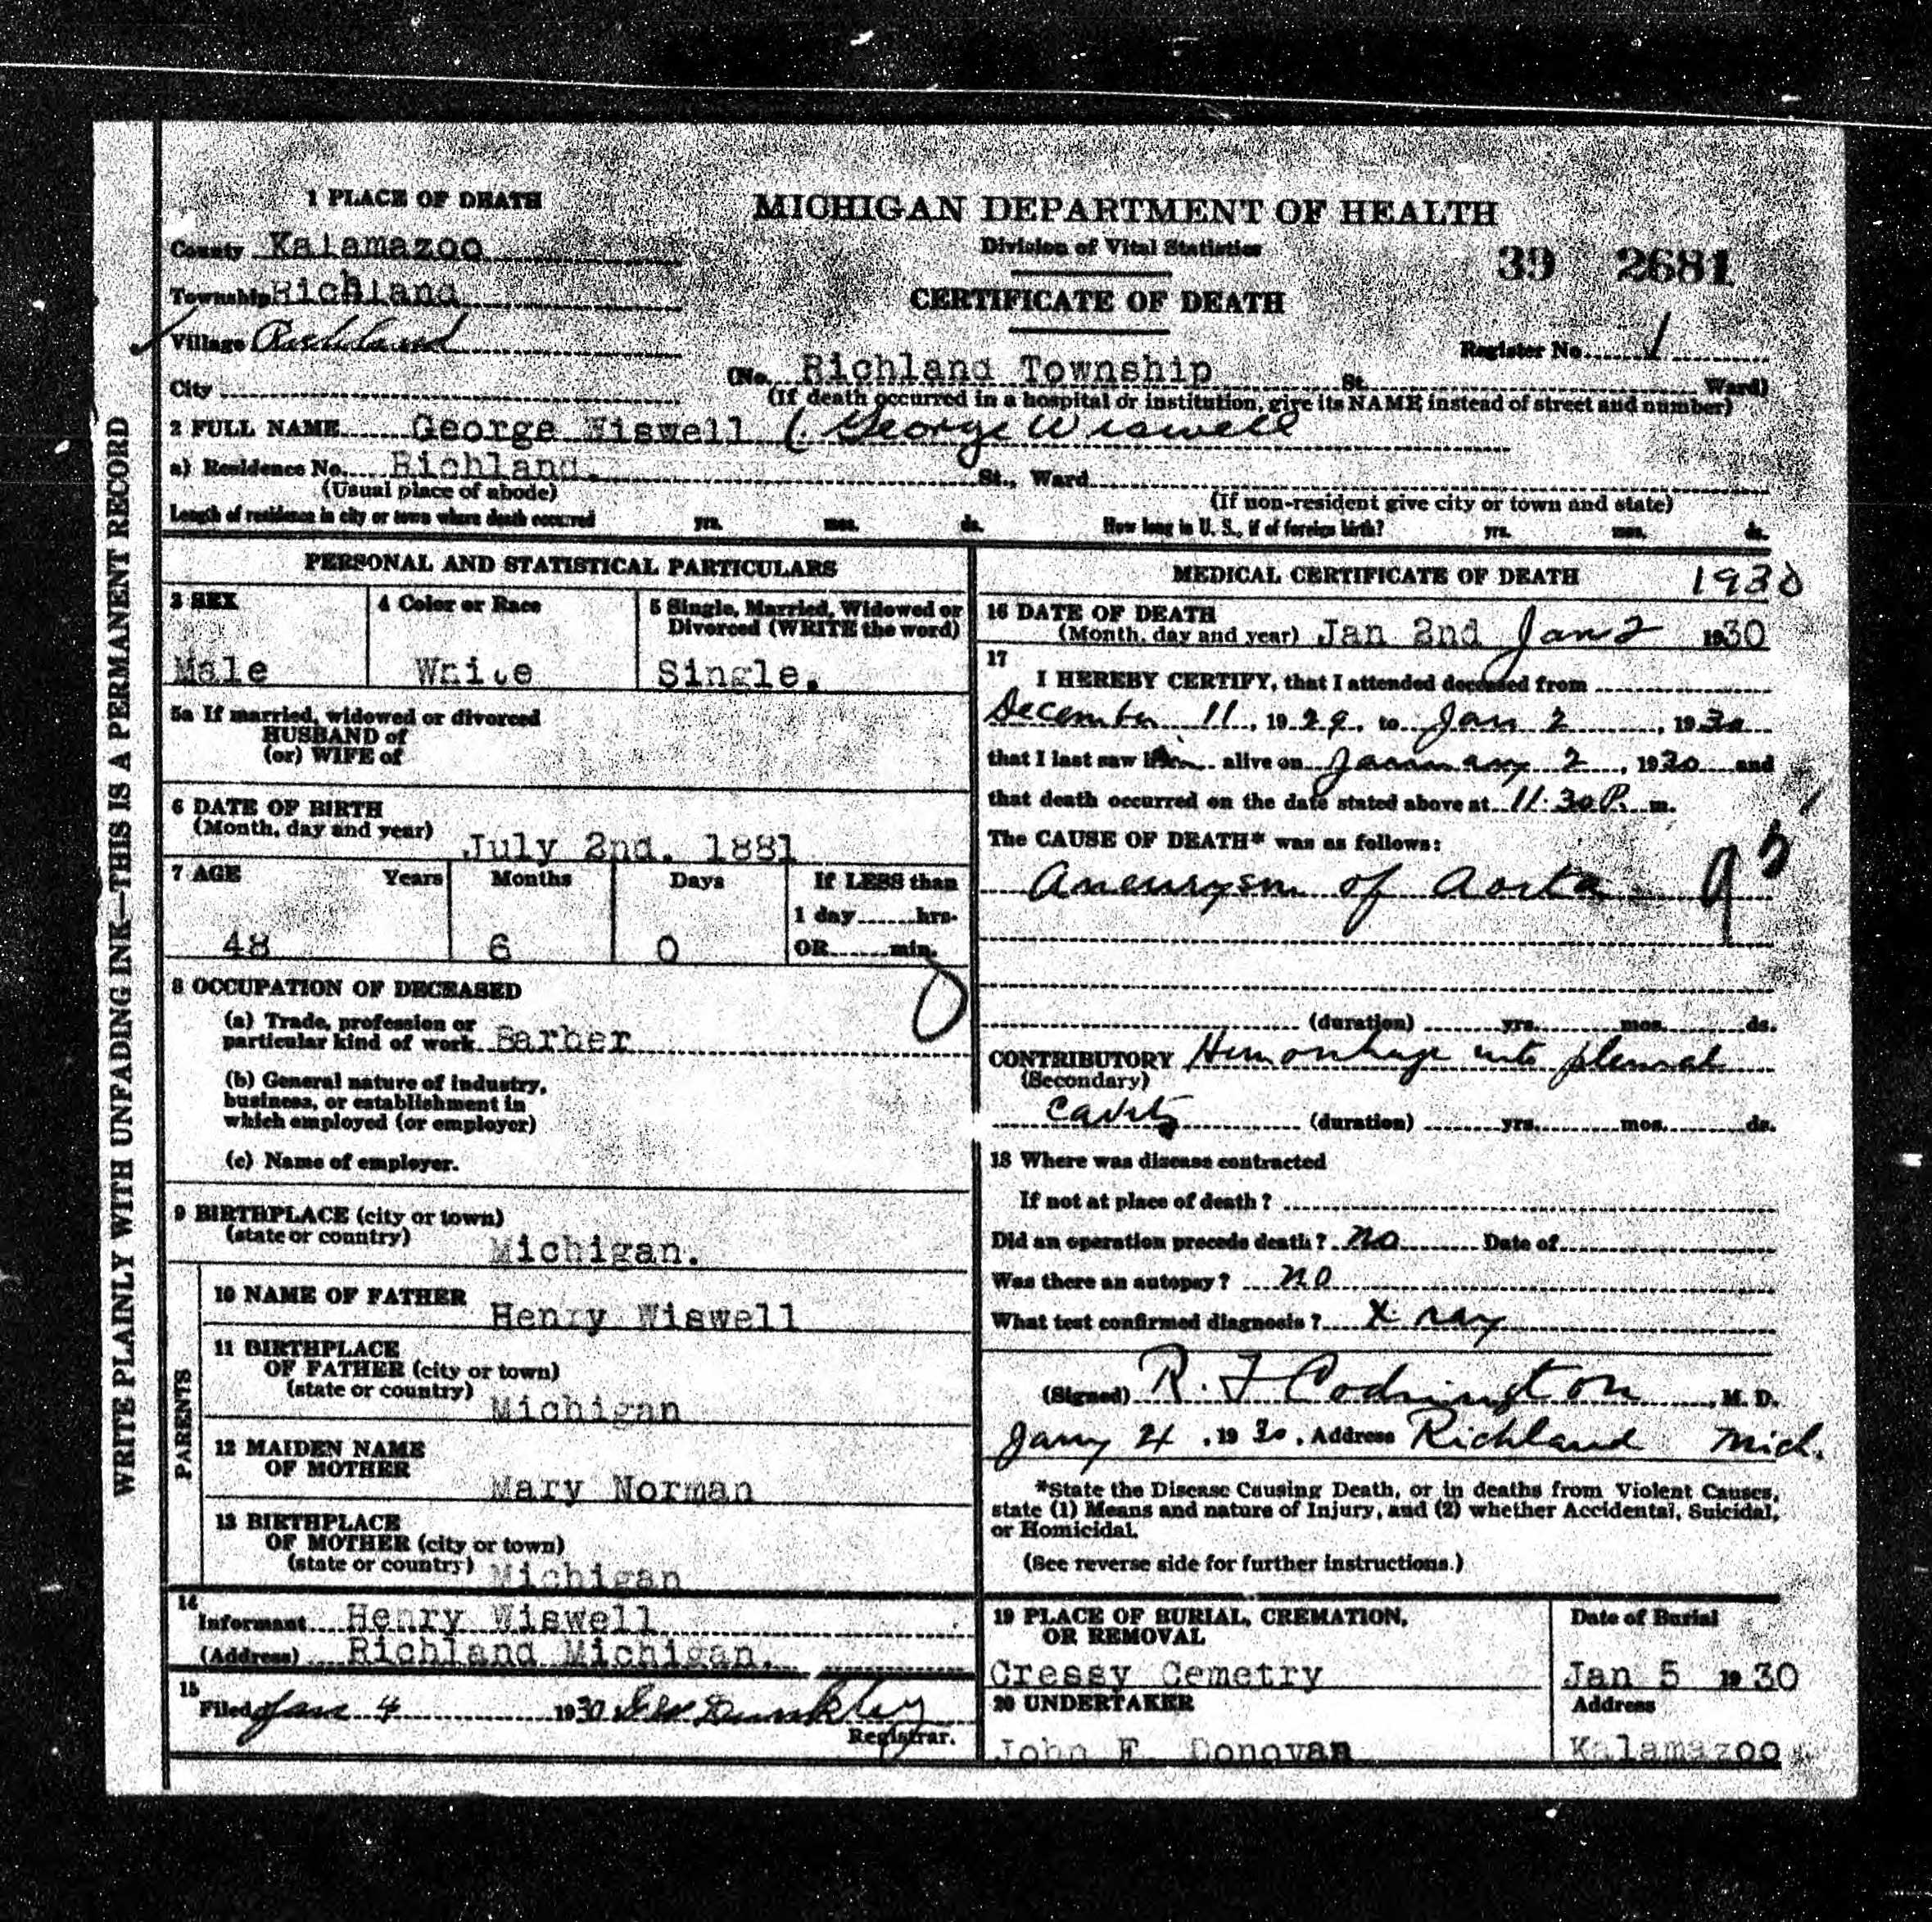 WRITE PLAINLY WITH UNFADING INK—THIS IS A PERMANENT RECORD
1 PLACE OF DEATH
County Kalamazoo
Township Richland
Village Richland
City
MICHIGAN DEPARTMENT OF HEALTH
Division of Vital Statistics
CERTIFICATE OF DEATH
39 2681
Register No. 1
(No. Richland Township St. Ward)
(If death occurred in a hospital or institution, give its NAME instead of street and number)
2 FULL NAME George Wiswell ( George Wiswell
a) Residence No. Richland. St., Ward
(Usual place of abode) (If non-resident give city or town and state)
Length of residence in city or town where death occurred yrs. mos. ds. How long in U. S., if of foreign birth? yrs. mos. ds.
PERSONAL AND STATISTICAL PARTICULARS
3 SEX
Male
4 Color or Race
White
5 Single, Married, Widowed or
Divorced (WRITE the word)
Single.
5a If married, widowed or divorced
HUSBAND of
(or) WIFE of
6 DATE OF BIRTH
(Month, day and year) July 2nd. 1881
7 AGE Years Months Days If LESS than
1 day hrs.
48 6 0 OR min.
8 OCCUPATION OF DECEASED
(a) Trade, profession or
particular kind of work Barber
(b) General nature of industry,
business, or establishment in
which employed (or employer)
(c) Name of employer.
9 BIRTHPLACE (city or town)
(state or country) Michigan.
PARENTS
10 NAME OF FATHER Henry Wiswell
11 BIRTHPLACE
OF FATHER (city or town)
(state or country) Michigan
12 MAIDEN NAME
OF MOTHER Mary Norman
13 BIRTHPLACE
OF MOTHER (city or town)
(state or country) Michigan
14
Informant Henry Wiswell
(Address) Richland Michigan.
15
Filed Jan 4 1930 Geo Dunkley
Registrar.
MEDICAL CERTIFICATE OF DEATH 1930
16 DATE OF DEATH
(Month, day and year) Jan 2nd Jan 2 1930
17
I HEREBY CERTIFY, that I attended deceased from
December 11, 1929, to Jan 2, 1930
that I last saw him alive on January 2, 1930 and
that death occurred on the date stated above at 11.30 P. m.
The CAUSE OF DEATH* was as follows:
Aneurysm of Aorta
(duration) yrs. mos. ds.
CONTRIBUTORY Hemorrhage into pleural
(Secondary)
cavity (duration) yrs. mos. ds.
18 Where was disease contracted
If not at place of death?
Did an operation precede death? no Date of
Was there an autopsy? no
What test confirmed diagnosis? X ray
(Signed) R. J Codrington, M. D.
Jany 4, 1930, Address Richland Mich.
*State the Disease Causing Death, or in deaths from Violent Causes,
state (1) Means and nature of Injury, and (2) whether Accidental, Suicidal,
or Homicidal.
(See reverse side for further instructions.)
19 PLACE OF BURIAL, CREMATION,
OR REMOVAL
Cressy Cemetry
Date of Burial
Jan 5 1930
20 UNDERTAKER
John F. Donovan
Address
Kalamazoo